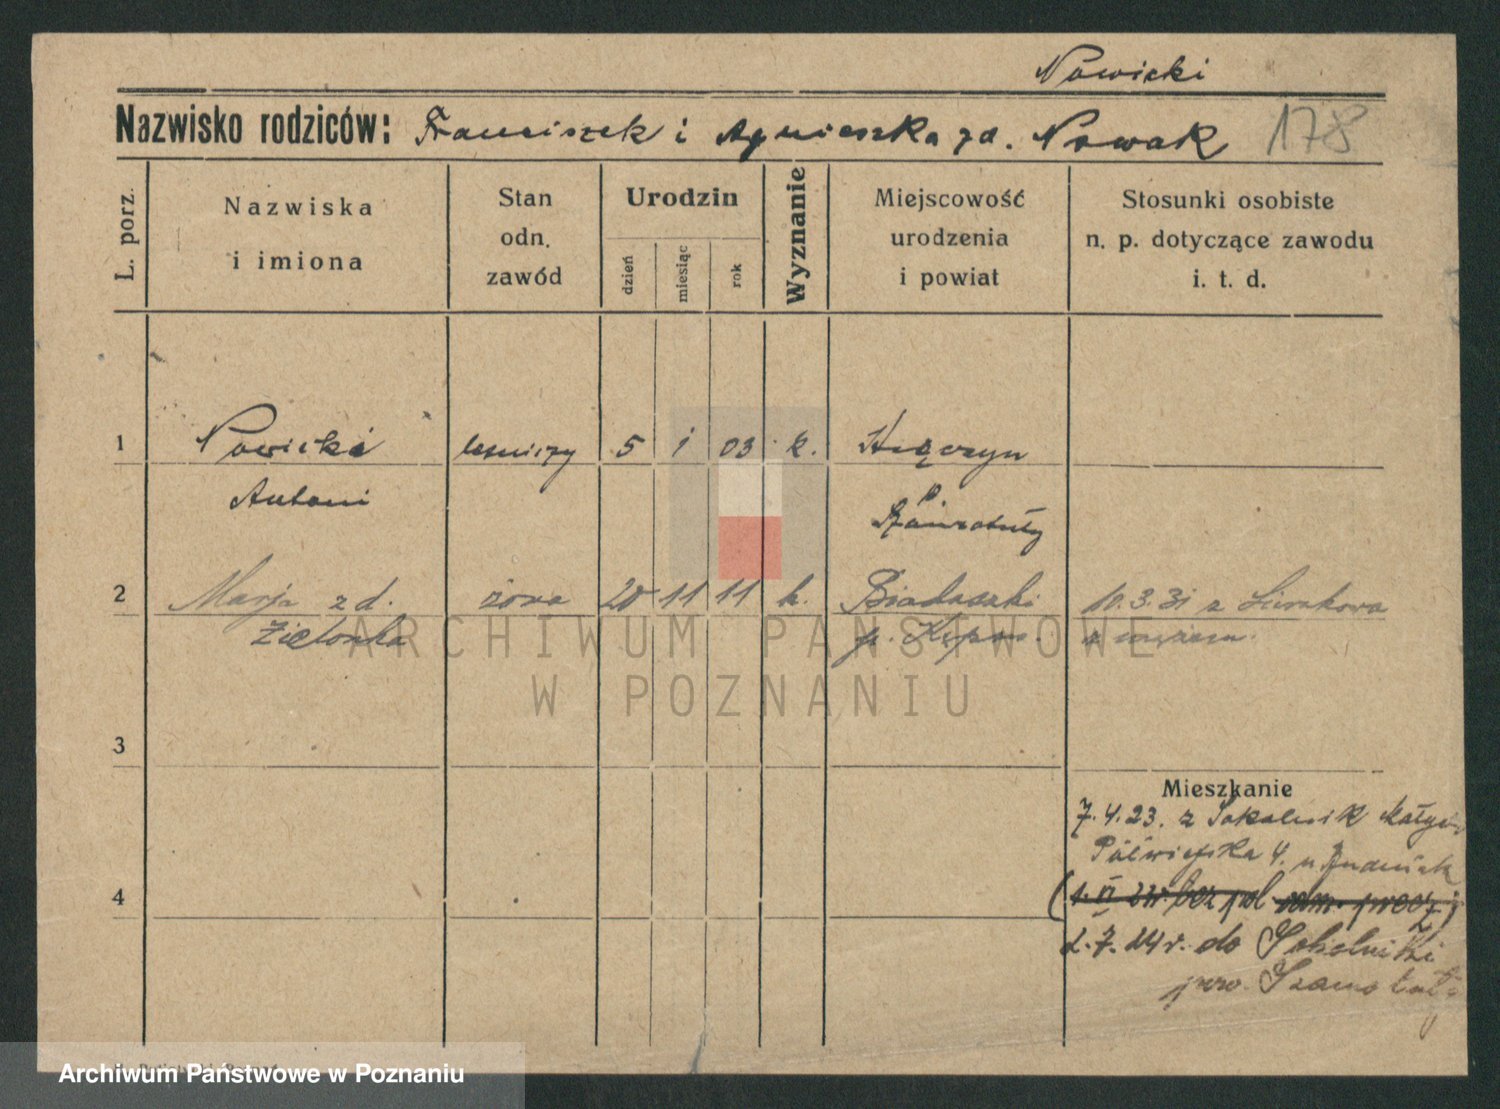 Nowicki
Nazwisko rodziców: Franciszek i Agnieszka zd. Nowak 178
L. porz.
Nazwiska
i imiona
Stan
odn.
zawód
Urodzin
dzień
miesiąc
rok
Wyznanie
Miejscowość
urodzenia
i powiat
Stosunki osobiste
n. p. dotyczące zawodu
i. t. d.
1 Nowicki leśniczy 5 1 03 k.
Antoni
p.
Szamotuły
2 Marja zd. żona 20 11 11 k. Biadaszki 10.3.31 z Sierakowa
Zielonka p. Kępno. z mężem.
3
Mieszkanie
7.4.23. z Sokolnik Małych
Półwiejska 4. u
4
1. VI bez
2.7.24 r. do Sokolniki
pow. Szamotuły
ARCHIWUM PAŃSTWOWE
W POZNANIU
Archiwum Państwowe w Poznaniu